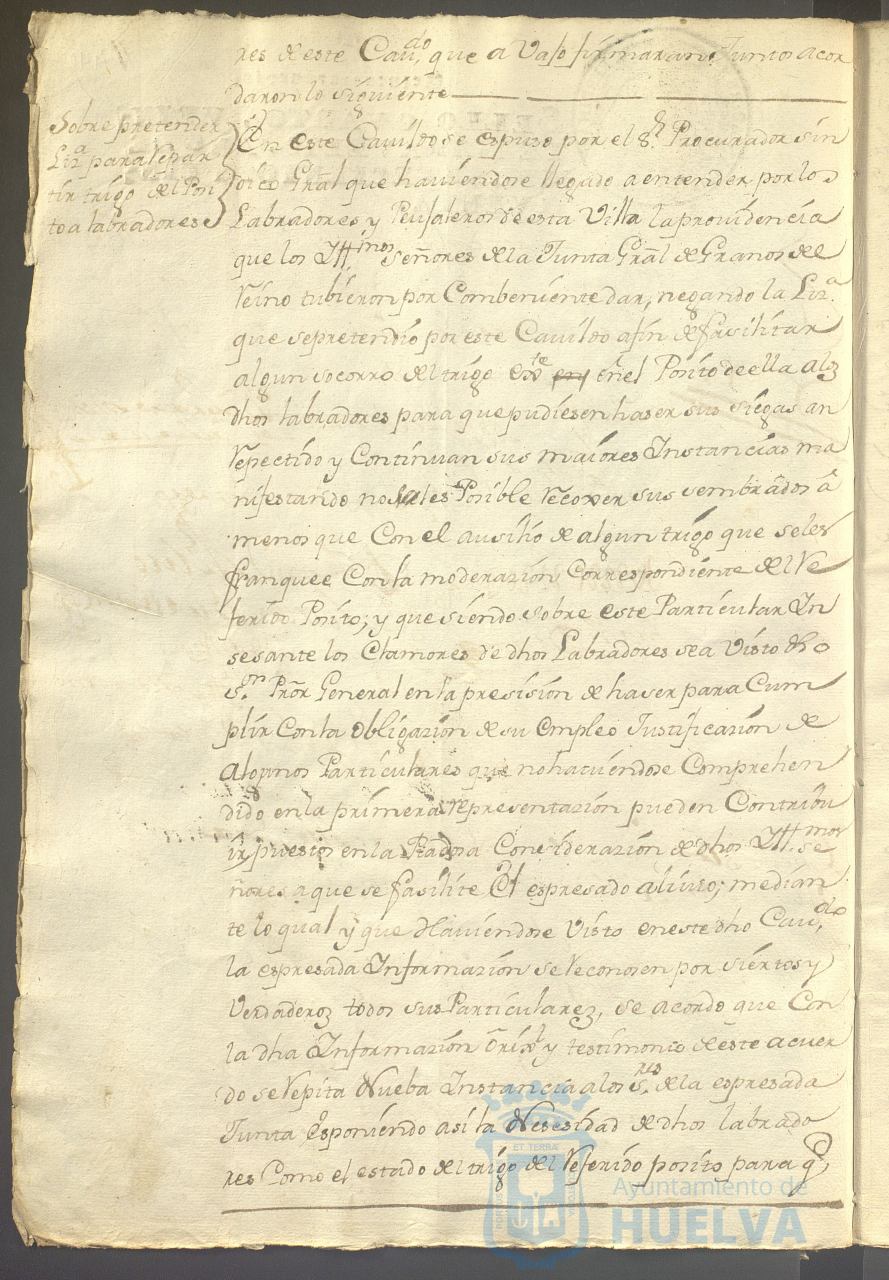 res de este Cau.do, que a vajo firmaran Juntos acor
daron lo siguiente
Sobre pretender
Liz.a para repar
tir trigo del Posi
to a labradores
En este Cavildo se espuso por el S.r Procurador sin
dico Gral que haviendose llegado a entender por los
Labradores y Peujaleros de esta Villa la providencia
que los Ill.mos Señores de la Junta Gral de Granos del
Reino tubieron por Combeniente dar, negando la Liz.a
que se pretendio por este Cavildo afin de fasilitar
algun socorro del trigo exte en el Posito de ella alos
dhos labradores para que pudiesen haser sus siegas an
repectido y Continuan sus maiores Instancias ma
nifestando no serles Posible recoxer sus sembrados â
menos que Con el ausilio de algun trigo que seles
franquee Con la moderazion Correspondiente del Re
ferido Posito; y que siendo sobre este Particular In
sesante los Clamores de dhos Labradores sea visto dho
S.or Pror General en la presision de haser para Cum
plir Con la obligazion de su empleo Justificazion de
Algunos Particulares que no haviendose Comprehen
dido en la primera Representazion pueden Contribu
ir puestos en la Piadosa Considerazion de dhos Ill.mos Se
ñores a que se fasilite el espresado alivio; median
te lo qual y que Haviendose Visto en este dho Cau.do
la espresada Informazion se reconosen por siertos y
verdaderos todos sus Particulares, se acordo que Con
la dha Informazion Orixl y testimonio de este acuer
do se repita Nueba Instancia alos S.res de la espresada
Junta esponiendo asi la Nesesidad de dhos labrado
res Como el estado del trigo del Referido posito para q.e
ET TERRA
Ayuntamiento de
HUELVA